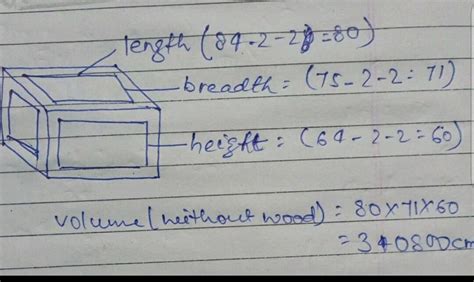 length (84-2-2)=80)
breadth = (75-2-2=71)
height = (64-2-2=60)
volume (without wood) = 80x71x60
= 340800cm